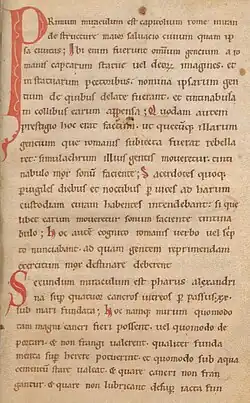 PRimum miraculum est capitolium rome totian
de structure maio saluacio ciuium quam ip
sa ciuitas; Ibi enim fuerunt omnium gencium a ro
manis captarum statue vel deorum imagines. et
in statuarum pectoribus. nomina ipsarum gen
cium de quibus delate fuerant. et tintinabula
in collibus earum appensa; Quodam autem
prestigio hoc erat factum. ut quecumque illarum
gencium que romanis subiecta fuerat rebella
ret. simulachrum illius gentis moueretur. tinti
nabulo mox sonum faciente; Sacerdotes quoque
peruigiles diebus et noctibus per uices ad harum
custodiam curam habentes intendebant; si que
libet earum moueretur sonum faciente tintina
bulo; hoc autem cognito romanis uerbo vel scrip
to nunciabant. ad quam gentem reprimendam
exercitum mox destinare deberent
Secundum miraculum est pharus alexandri
na super quatuor cancros uitreos per passus .xx.
sub mari fundata; hoc namque mirum quomodo
tam magni cancri fieri possent. uel quomodo de
portari et non frangi ualerent. qualiter funda
menta super herere potuerint. et quomodo sub aqua
cementum stare ualeat. et quare cancri non fran
gantur. et quare non lubricant desuper iacta fun